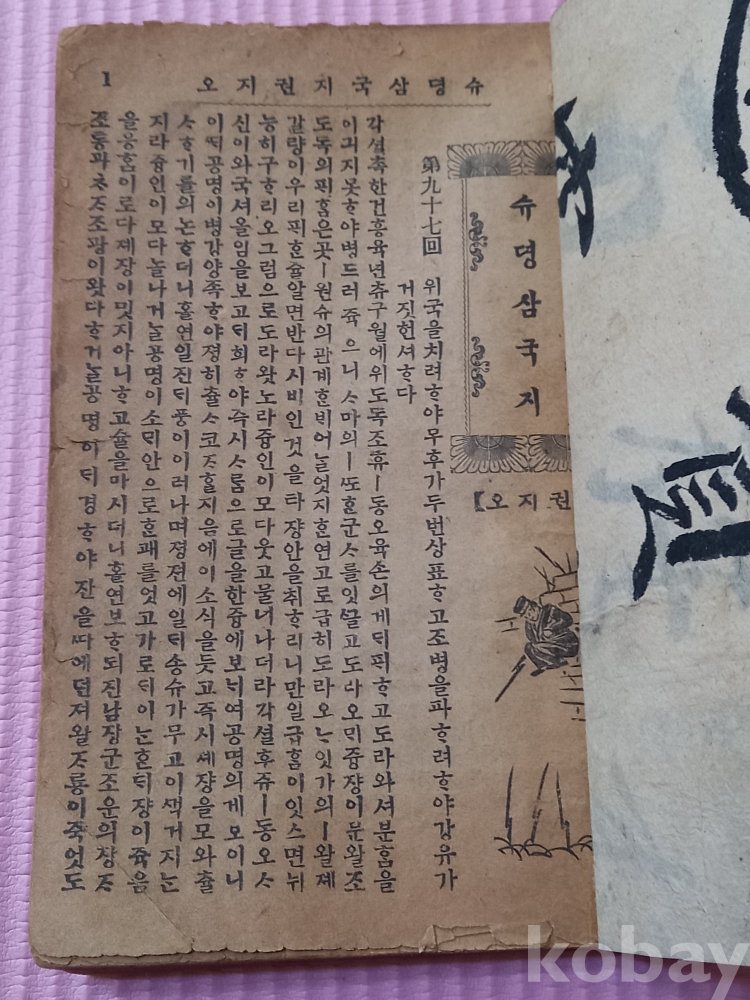 슈뎡삼국지권지오
1
슈뎡삼국지
권지오】
第九十七回 위국을치려ᄒᆞ야무후가두번상표ᄒᆞ고조병을파ᄒᆞ려ᄒᆞ야강유가
거짓헌셔ᄒᆞ다
각셜촉한건흥육년츄구월에위도독조휴ㅣ동오육손의게ᄃᆡ픽ᄒᆞ고도라와셔분홈을
이긔지못ᄒᆞ야병드러쥭으니ᄉᆞ마의ㅣᄯᅩᄒᆞᆫ군ᄉᆞ를잇ᄭᅳᆯ고도라오ᄆᆡ즁쟝이문왈조
도독의픽홈은곳ㅣ원슈의관계ᄒᆞᆫᄇᆡ어ᄂᆞᆯ엇지ᄒᆞᆫ연고로급히도라오ᄂᆞ잇가의ㅣ왈졔
갈량이우리픽ᄒᆞᆫ쥴알면반다시비인것을타쟝안을취ᄒᆞ리니만일급홈이잇스면뉘
능히구ᄒᆞ리오그럼으로도라왓노라즁인이모다웃고물너나더라각셜후쥬ㅣ동오ᄉᆞ
신이와국셔올임을보고ᄃᆡ희ᄒᆞ야즉시ᄉᆞ름으로글을한즁에보ᄂᆡ여공명의게보이니
이ᄯᆡ공명이병강양족ᄒᆞ야졍히츌ᄉᆞ코ᄌᆞᄒᆞᆯ지음에이소식을듯고즉시졔쟝을모와츌
ᄉᆞᄒᆞ기를의논ᄒᆞ더니홀연일진ᄃᆡ풍이이러나며졍젼에일ᄃᆡ송슈가무고이ᄭᅥᆨ거지ᄂᆞᆫ
지라즁인이모다놀나거ᄂᆞᆯ공명이소ᄆᆡ안으로ᄒᆞᆫ패를엇고가로ᄃᆡ이ᄂᆞᆫᄒᆞᆫᄃᆡ쟝이쥭음
을응홈이로다졔장이밋지아니ᄒᆞ고슐을마시더니홀연보ᄒᆞ되진남장군조운의장ᄌᆞ
조통과ᄎᆞᄌᆞ조광이왓다ᄒᆞ거ᄂᆞᆯ공명이ᄃᆡ경ᄒᆞ야잔을ᄯᅡ에던져왈ᄌᆞ룡이죽엇도
kobay